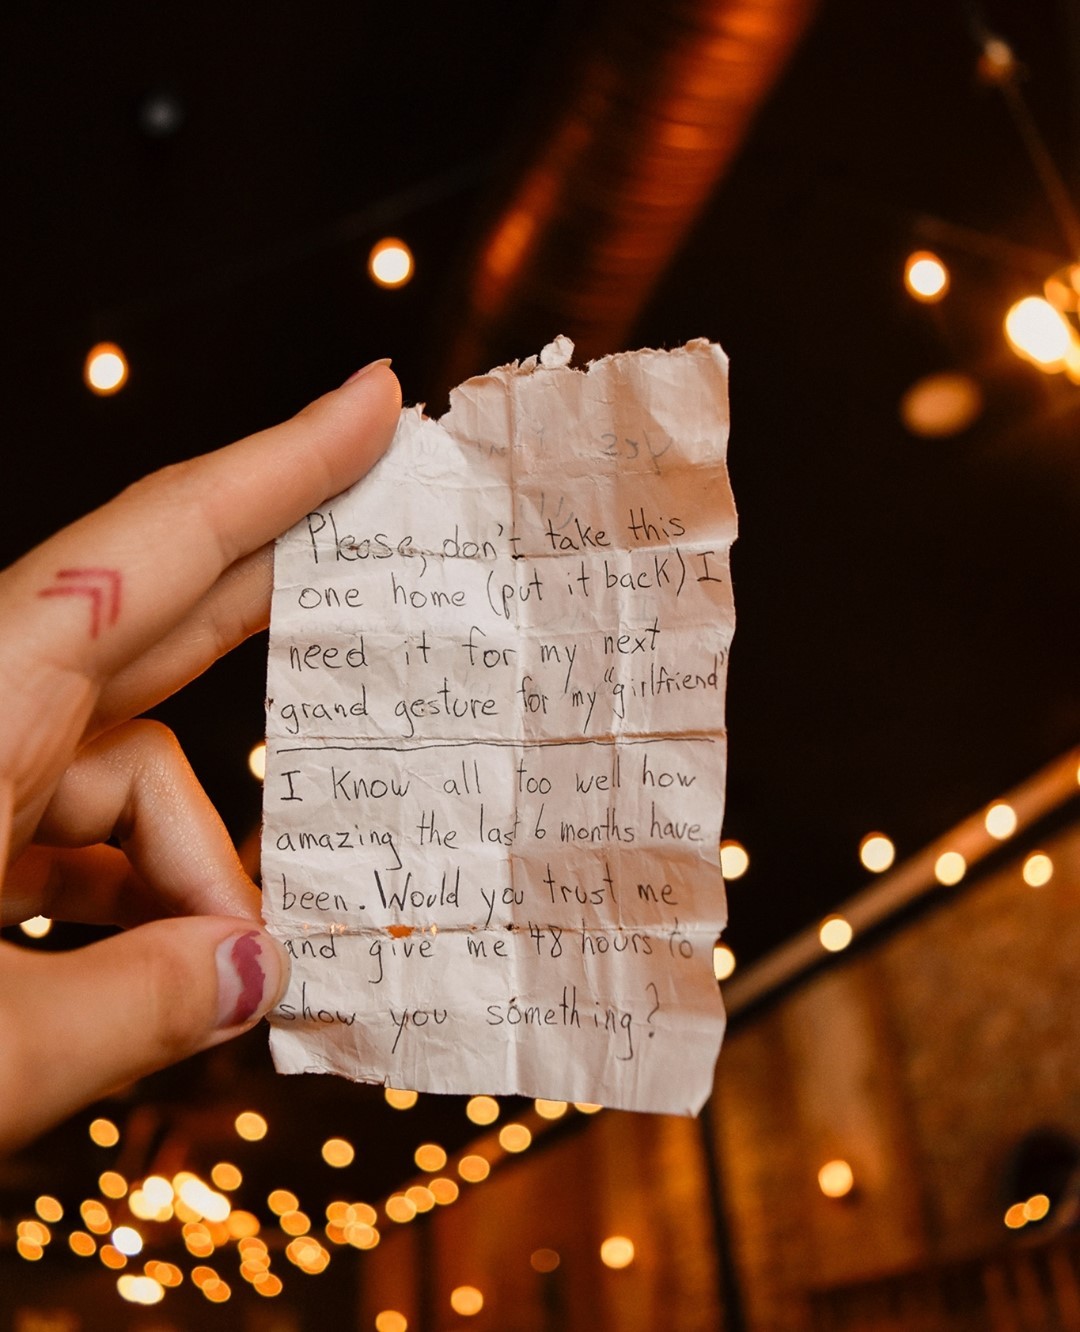 Please, don't take this
one home (put it back) I
need it for my next
grand gesture for my "girlfriend"
I know all too well how
amazing the last 6 months have
been. Would you trust me
and give me 48 hours to
show you something?